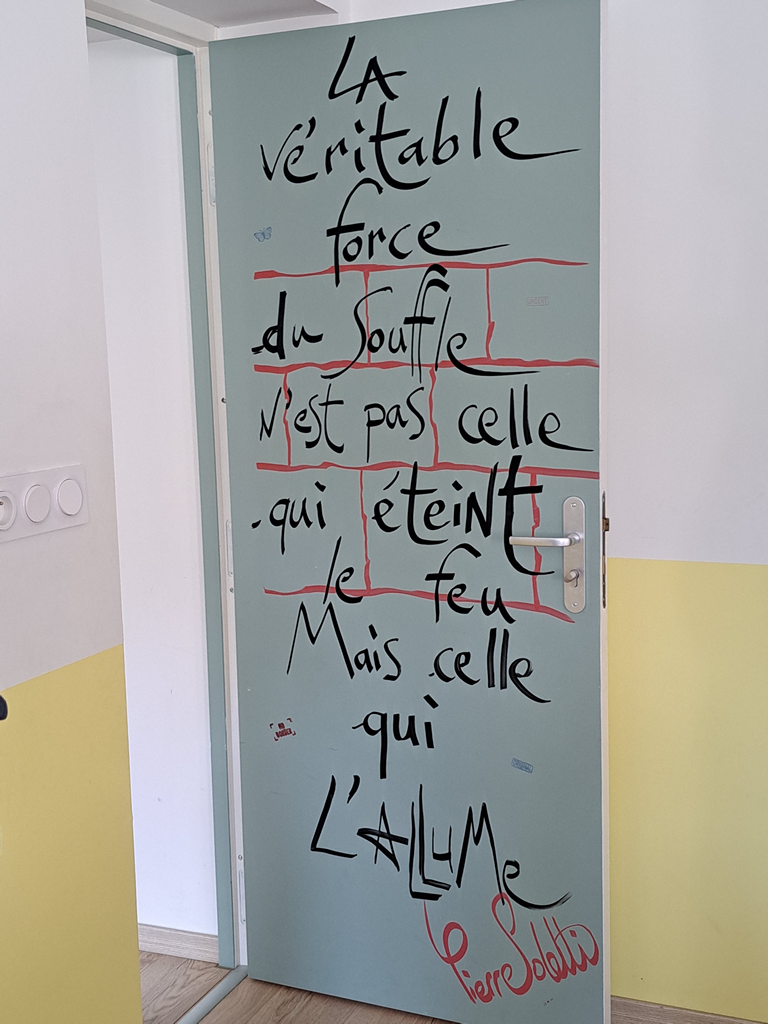 LA
véritable
force
du Souffle
N'est pas celle
qui éteiNt
le feu
Mais celle
qui
L'ALLuMe
Pierre Soletti
NO
BORDER